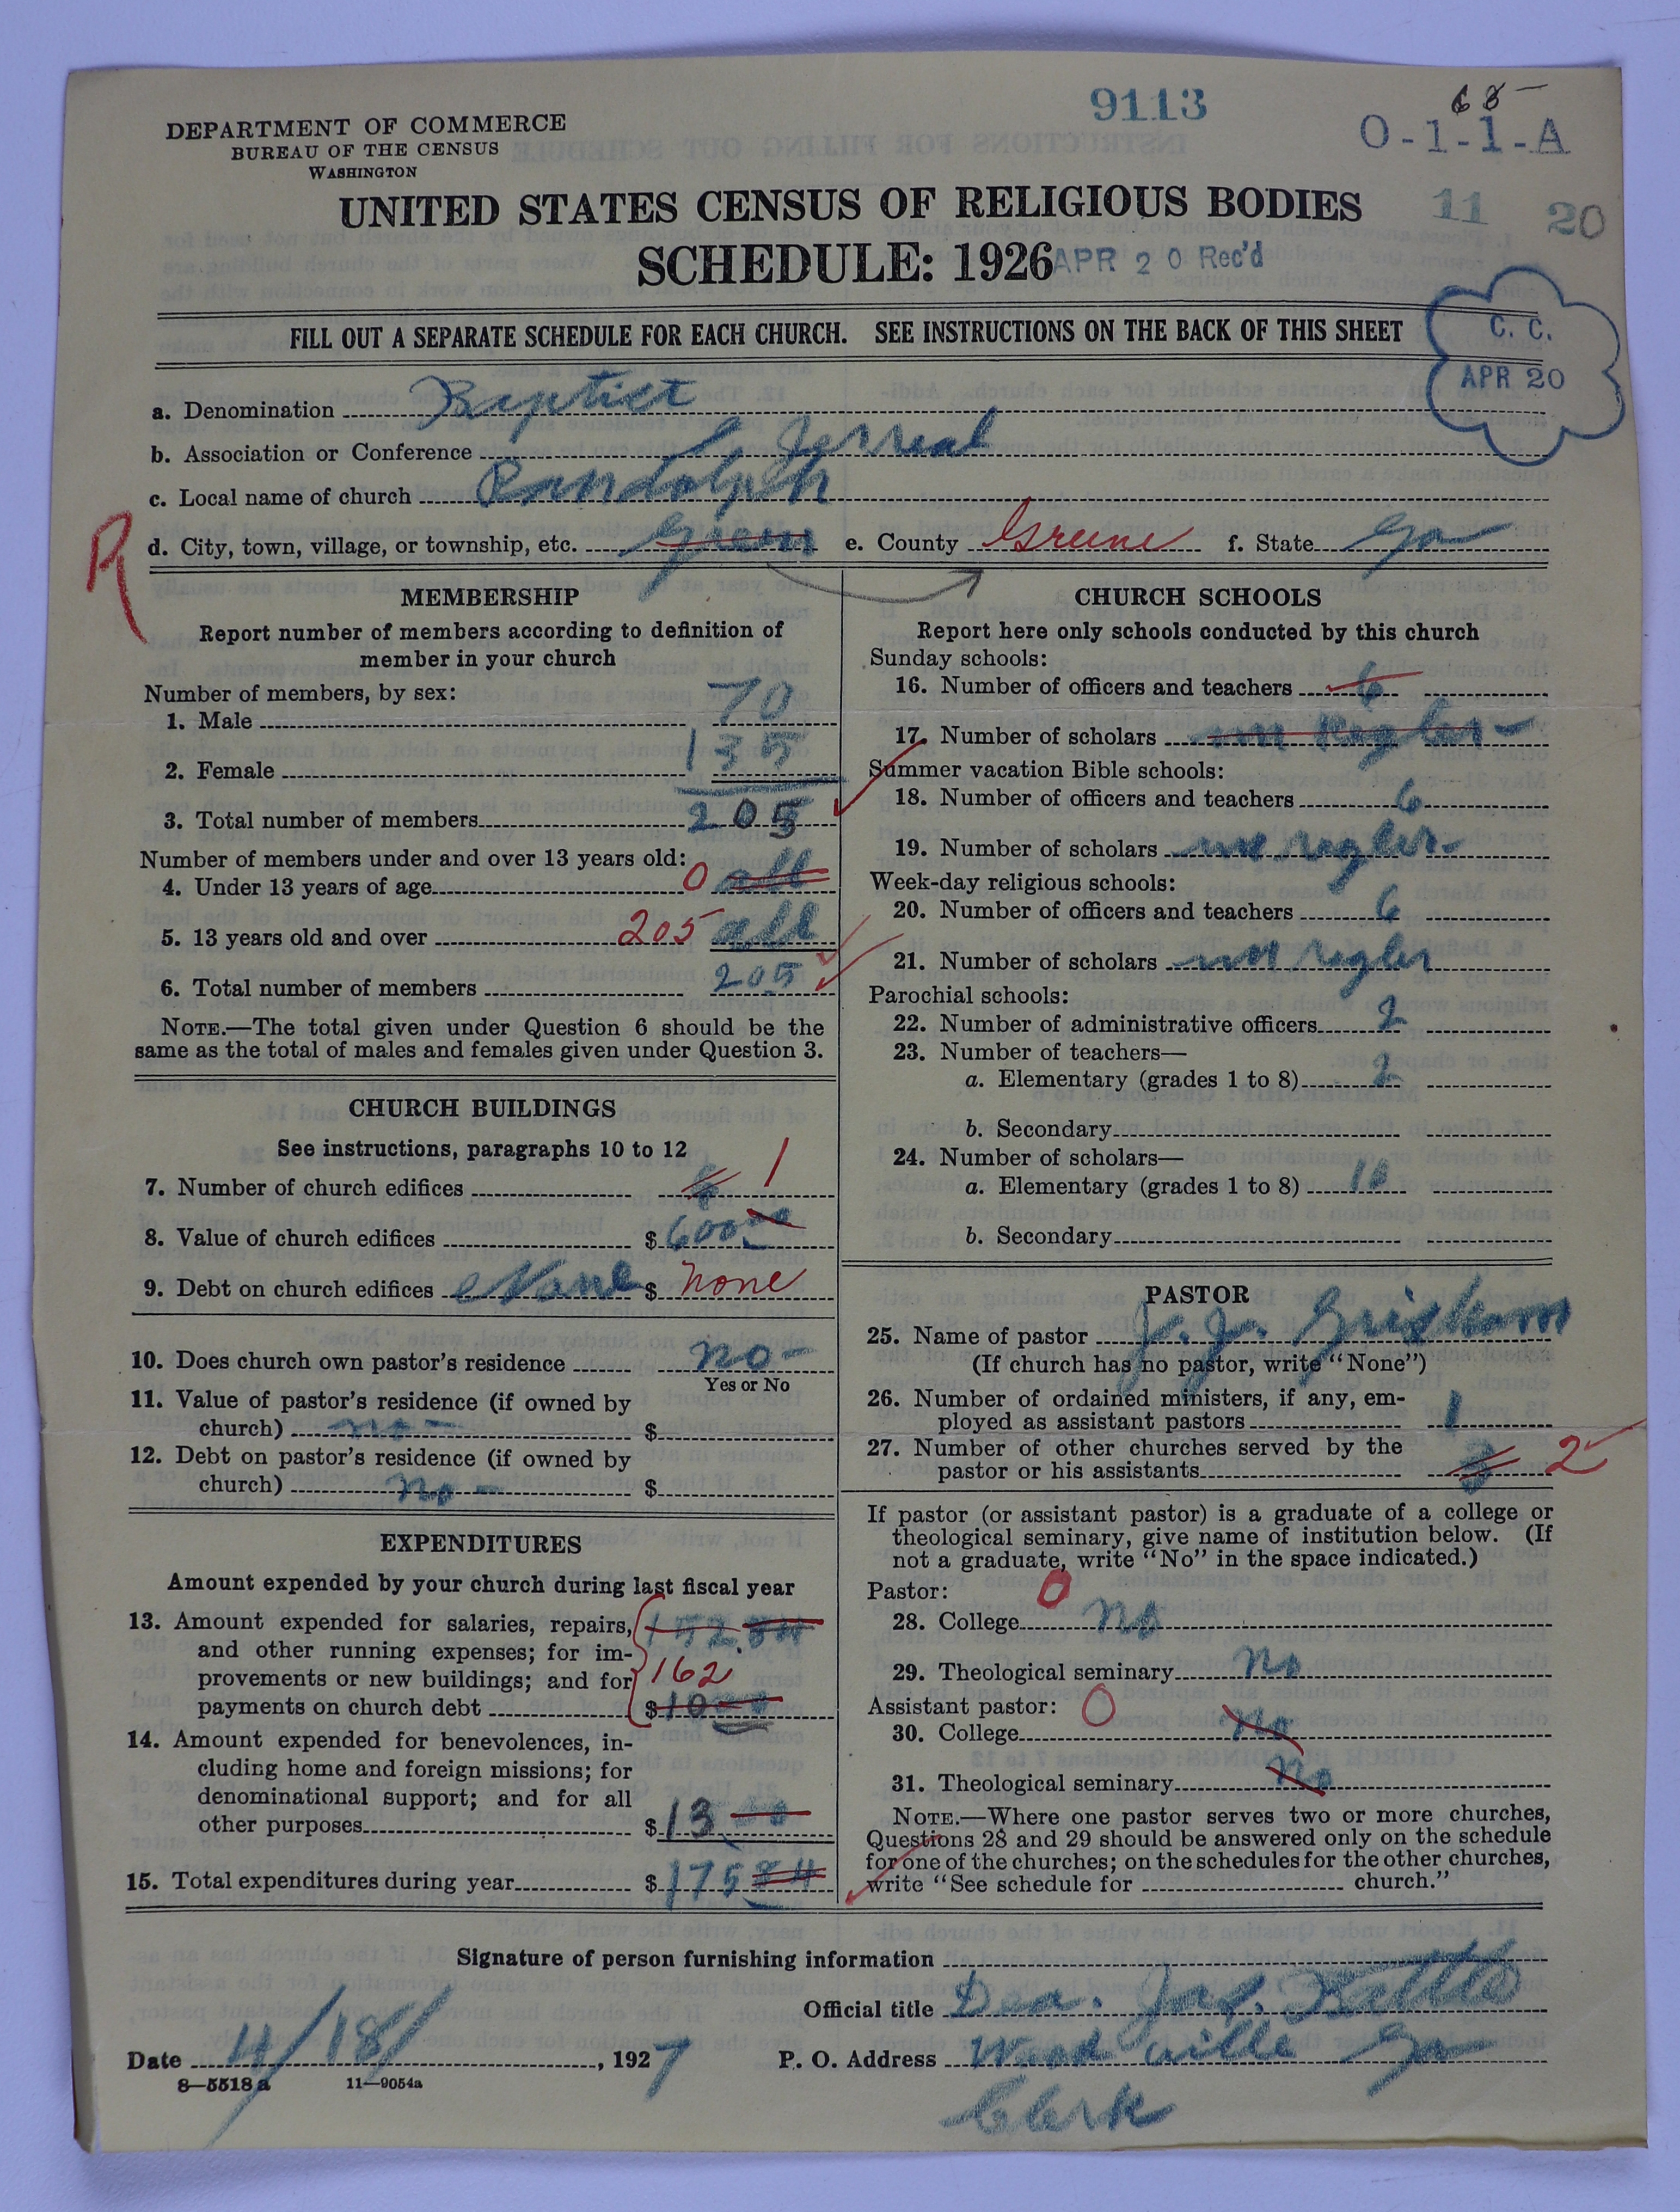 9113
68-
DEPARTMENT OF COMMERCE
O-1-1-A
BUREAU OF THE CENSUS
WASHINGTON
UNITED STATES CENSUS OF RELIGIOUS BODIES
11 20
SCHEDULE: 1926
APR 20 Rec'd
FILL OUT A SEPARATE SCHEDULE FOR EACH CHURCH. SEE INSTRUCTIONS ON THE BACK OF THIS SHEET
C. C.
APR 20
a. Denomination Baptist
b. Association or Conference Jerreal
c. Local name of church Randolph
R
d. City, town, village, or township, etc. Green e. County Greene f. State Ga
MEMBERSHIP
Report number of members according to definition of
member in your church
Number of members, by sex:
1. Male 70
2. Female 135
3. Total number of members 205
Number of members under and over 13 years old:
4. Under 13 years of age 0 all
5. 13 years old and over 205 all
6. Total number of members 205
NOTE.—The total given under Question 6 should be the
same as the total of males and females given under Question 3.
CHURCH BUILDINGS
See instructions, paragraphs 10 to 12
7. Number of church edifices 1
8. Value of church edifices $600
9. Debt on church edifices None $ none
10. Does church own pastor's residence no-
Yes or No
11. Value of pastor's residence (if owned by
church) no- $
12. Debt on pastor's residence (if owned by
church) no- $
EXPENDITURES
Amount expended by your church during last fiscal year
13. Amount expended for salaries, repairs, 152.84
and other running expenses; for im-
provements or new buildings; and for 162
payments on church debt $10 00
14. Amount expended for benevolences, in-
cluding home and foreign missions; for
denominational support; and for all
other purposes $13
15. Total expenditures during year $175 84
CHURCH SCHOOLS
Report here only schools conducted by this church
Sunday schools:
16. Number of officers and teachers 6
17. Number of scholars
Summer vacation Bible schools:
18. Number of officers and teachers 6
19. Number of scholars
Week-day religious schools:
20. Number of officers and teachers 6
21. Number of scholars
Parochial schools:
22. Number of administrative officers 2
23. Number of teachers—
a. Elementary (grades 1 to 8) 2
b. Secondary
24. Number of scholars—
a. Elementary (grades 1 to 8) 10
b. Secondary
PASTOR
25. Name of pastor J. J. Grisham
(If church has no pastor, write "None")
26. Number of ordained ministers, if any, em-
ployed as assistant pastors 1
27. Number of other churches served by the
pastor or his assistants 2
If pastor (or assistant pastor) is a graduate of a college or
theological seminary, give name of institution below. (If
not a graduate, write "No" in the space indicated.)
Pastor: 0
28. College no
29. Theological seminary no
Assistant pastor: 0
30. College No
31. Theological seminary No
NOTE.—Where one pastor serves two or more churches,
Questions 28 and 29 should be answered only on the schedule
for one of the churches; on the schedules for the other churches,
write "See schedule for church."
Signature of person furnishing information
Official title Dea. Jas. Battle
Date 4/18/, 1927 P. O. Address Woodville Ga
8—5518 a 11—9054a
Clerk